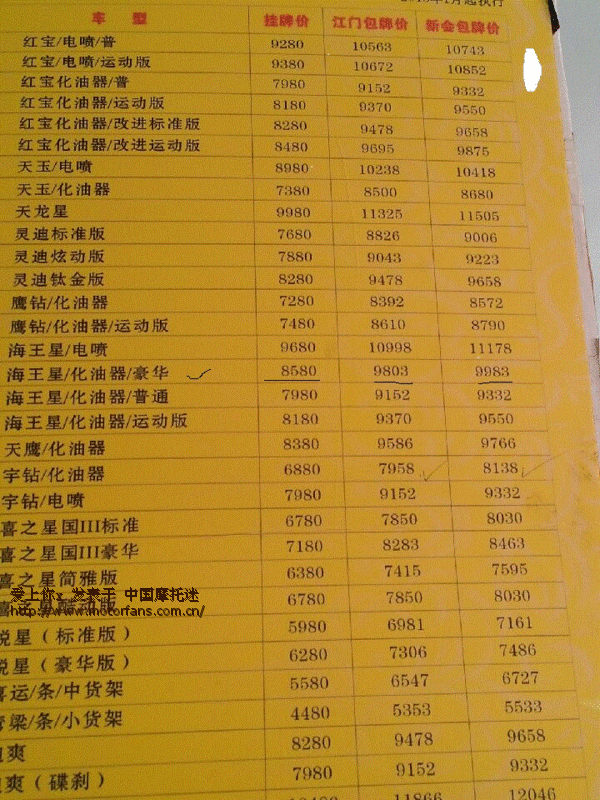 年1月起执行
车 型 挂牌价 江门包牌价 新会包牌价
红宝/电喷/普 9280 10563 10743
红宝/电喷/运动版 9380 10672 10852
红宝化油器/普 7980 9152 9332
红宝化油器/运动版 8180 9370 9550
红宝化油器/改进标准版 8280 9478 9658
红宝化油器/改进运动版 8480 9695 9875
天玉/电喷 8980 10238 10418
天玉/化油器 7380 8500 8680
天龙星 9980 11325 11505
灵迪标准版 7680 8826 9006
灵迪炫动版 7880 9043 9223
灵迪钛金版 8280 9478 9658
鹰钻/化油器 7280 8392 8572
鹰钻/化油器/运动版 7480 8610 8790
海王星/电喷 9680 10998 11178
海王星/化油器/豪华 8580 9803 9983
海王星/化油器/普通 7980 9152 9332
海王星/化油器/运动版 8180 9370 9550
天鹰/化油器 8380 9586 9766
宇钻/化油器 6880 7958 8138
宇钻/电喷 7980 9152 9332
喜之星国III标准 6780 7850 8030
喜之星国III豪华 7180 8283 8463
喜之星简雅版 6380 7415 7595
爱上你x 发表于 中国摩托迷
6780 7850 8030
http://www.motorfans.com.cn/
悦星（标准版） 5980 6981 7161
悦星（豪华版） 6280 7306 7486
喜运/条/中货架 5580 6547 6727
弯梁/条/小货架 4480 5353 5533
爽 8280 9478 9658
爽（碟刹） 7980 9152 9332
11866 12046